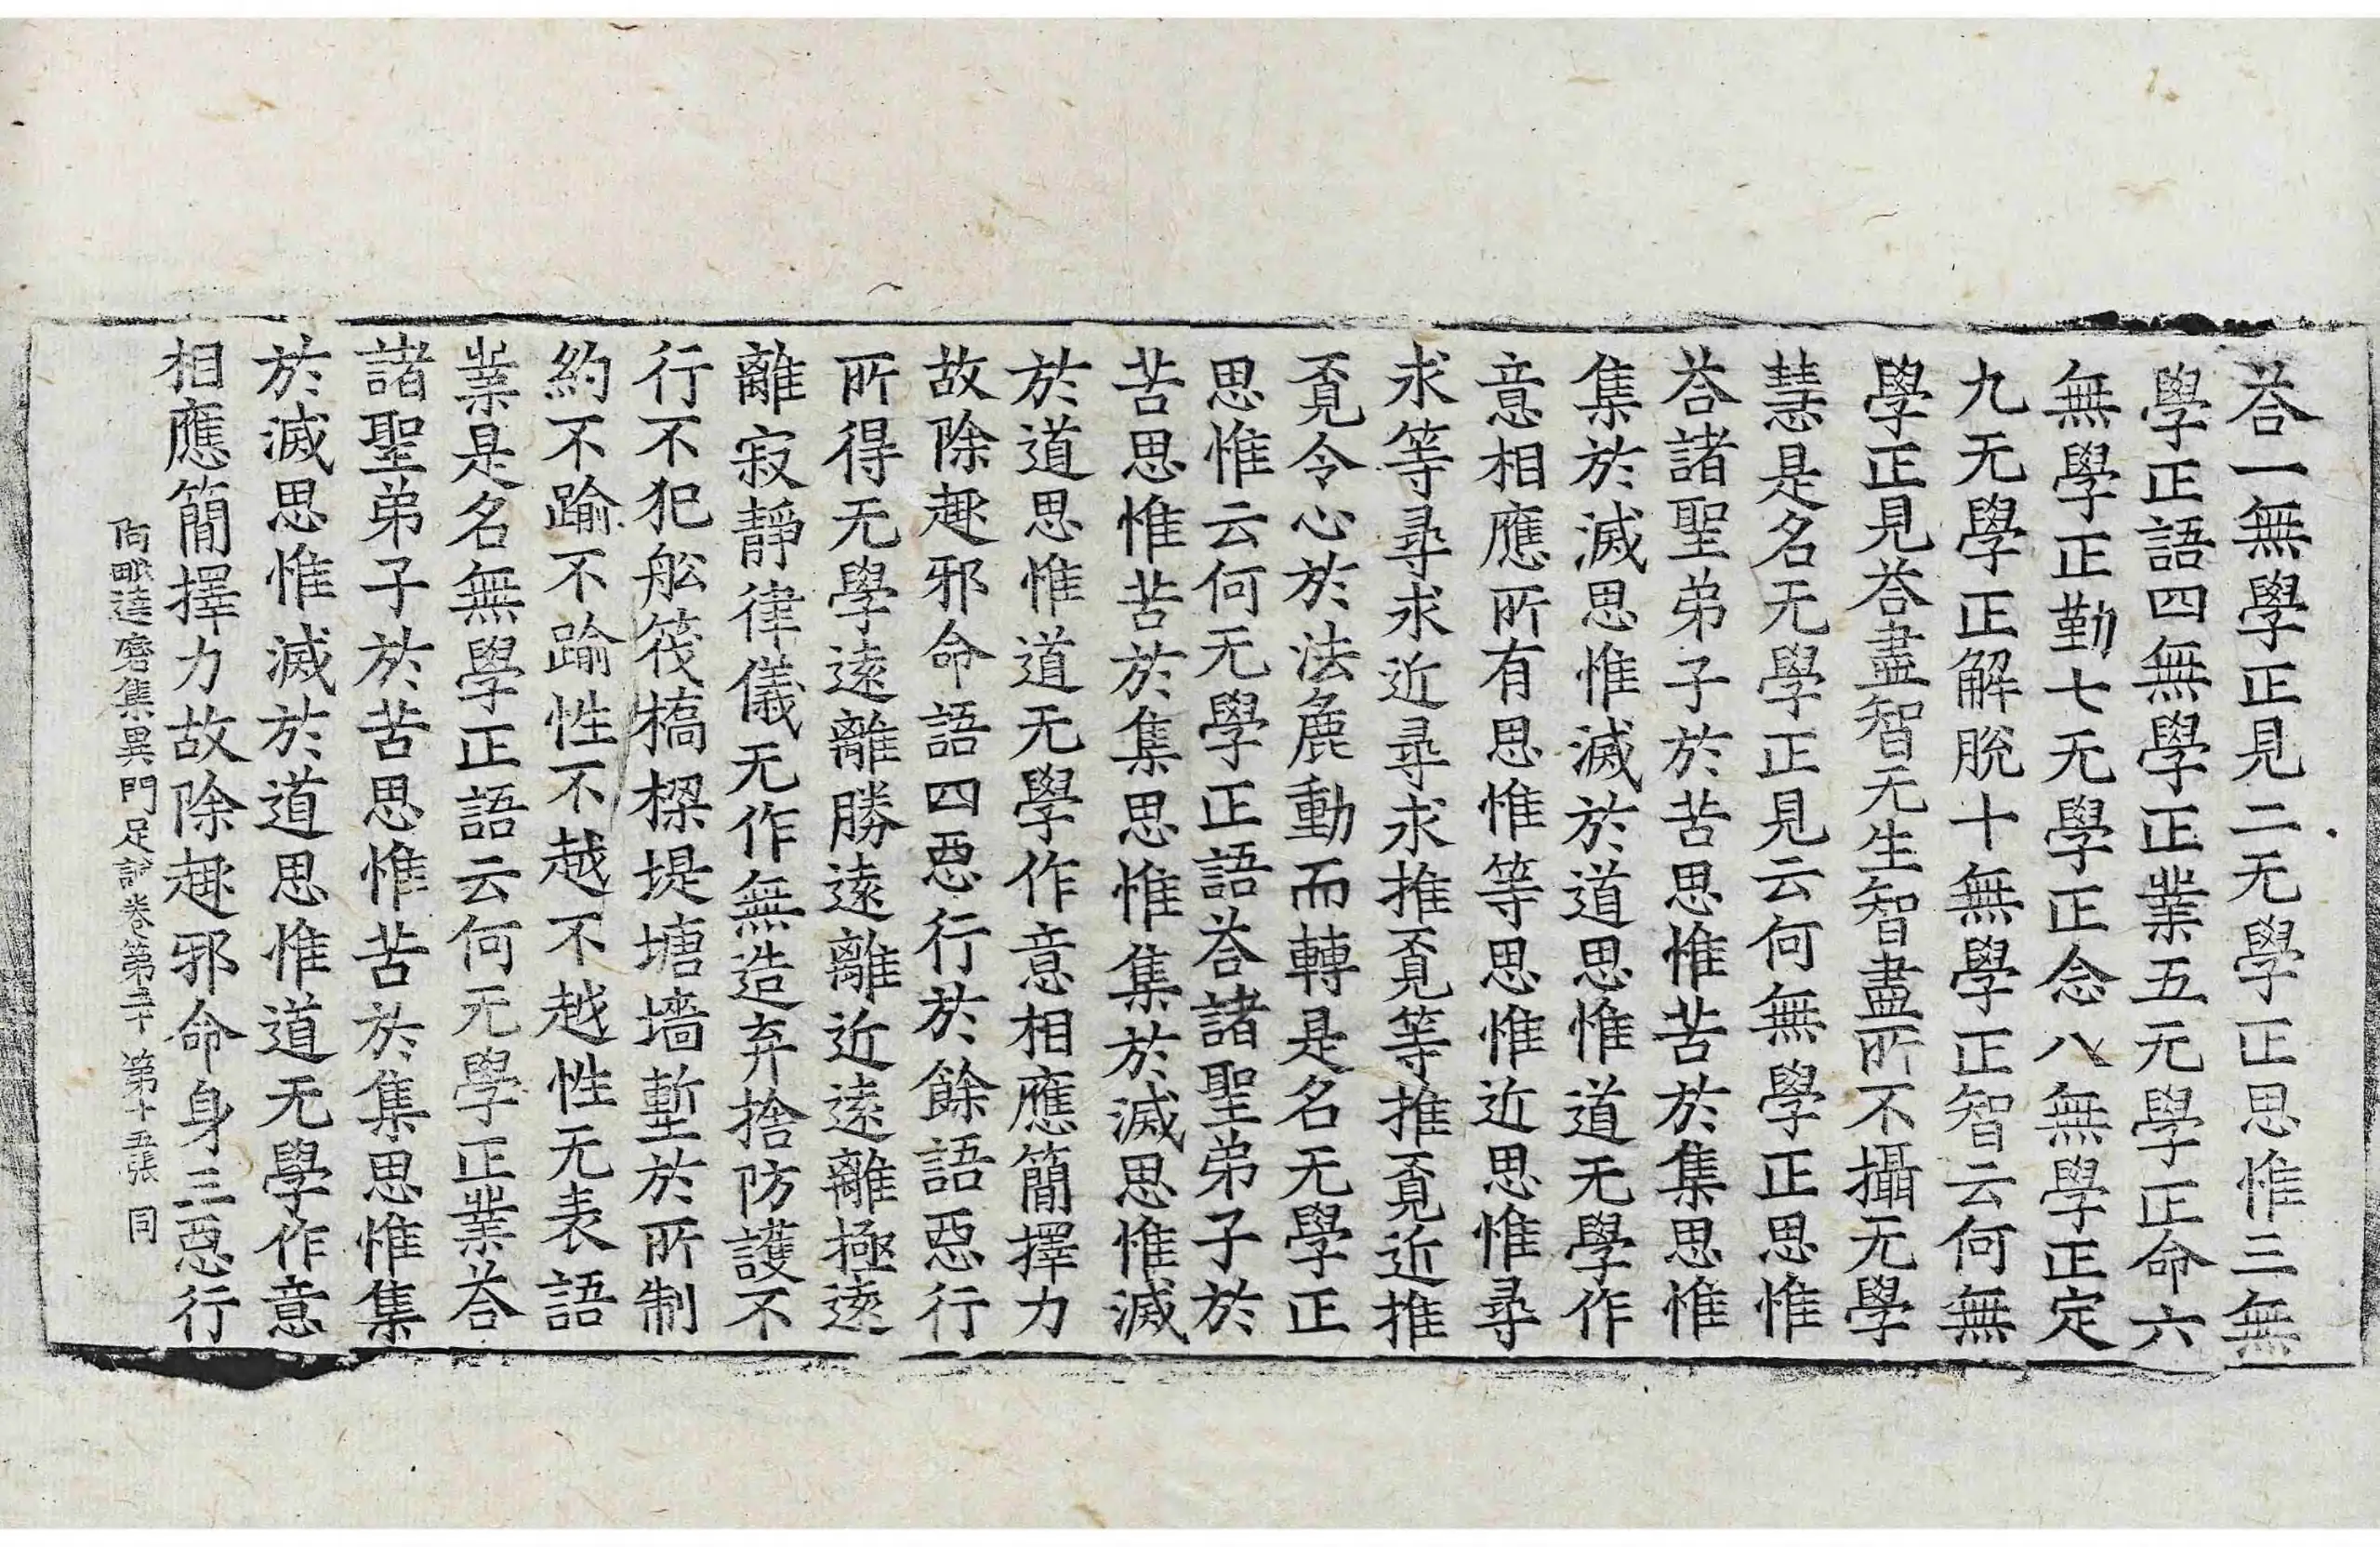 荅一無學正見二无學正思惟三無
學正語四無學正業五无學正命六
無學正勤七无學正念八無學正定
九无學正解脫十無學正智云何無
學正見荅盡智无生智盡所不攝无學
慧是名无學正見云何無學正思惟
荅諸聖弟子於苦思惟苦於集思惟
集於滅思惟滅於道思惟道无學作
意相應所有思惟等思惟近思惟尋
求等尋求近尋求推覓等推覓近推
覓令心於法麁動而轉是名无學正
思惟云何无學正語荅諸聖弟子於
苦思惟苦於集思惟集於滅思惟滅
於道思惟道无學作意相應簡擇力
故除趣邪命語四惡行於餘語惡行
所得无學逺離勝逺離近逺離極逺
離寂靜律儀无作無造弃捨防護不
行不犯舩筏橋樑堤塘墻塹於所制
約不踰不踰性不越不越性无表語
業是名無學正語云何无學正業荅
諸聖弟子於苦思惟苦於集思惟集
於滅思惟滅於道思惟道无學作意
相應簡擇力故除趣邪命身三惡行
阿毗達磨集異門足論卷第二十 第十五張 同